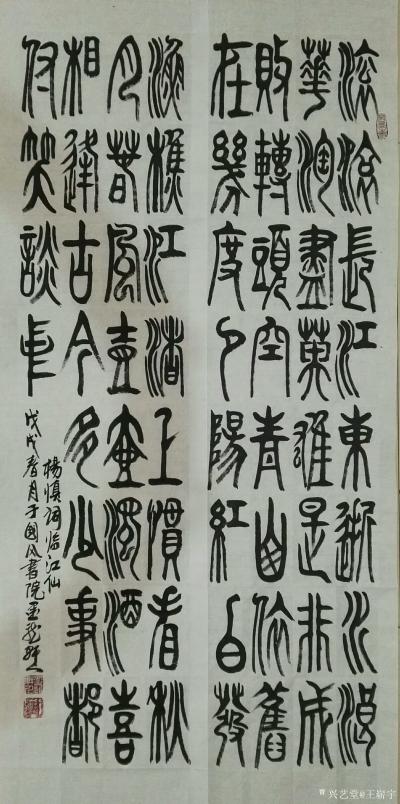 滾滾長江東逝水浪
華淘盡英雄是非成
敗轉頭空青山依舊
在幾度夕陽紅白發
漁樵江渚上慣看秋
月春風壹壺濁酒喜
相逢古今多少事都
付笑談中
楊慎词临江仙
戊戌春月于國风書院
兴艺堂@王